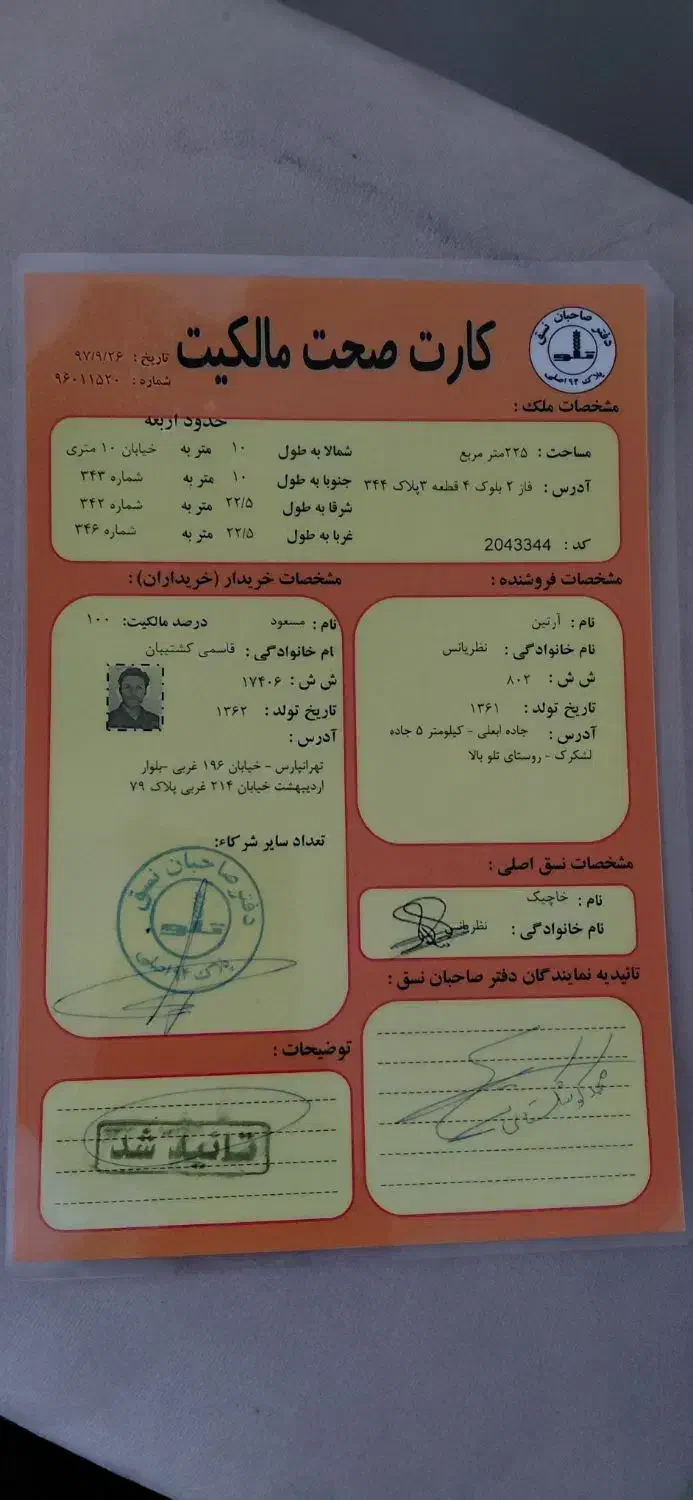 کارت صحت مالکیت
دفتر صاحبان نسق
تلو
پلاک ۹۴ اصلی
تاریخ : ۹۷/۹/۲۶
شماره : ۹۶۰۱۱۵۲۰
مشخصات ملک :
حدود اربعه
مساحت : ۲۲۵متر مربع
آدرس : فاز ۲ بلوک ۴ قطعه ۳پلاک ۳۴۴
کد : 2043344
شمالا به طول ۱۰ متر به خیابان ۱۰ متری
جنوبا به طول ۱۰ متر به شماره ۳۴۳
شرقا به طول ۲۲/۵ متر به شماره ۳۴۲
غربا به طول ۲۲/۵ متر به شماره ۳۴۶
مشخصات فروشنده :
نام : آرتین
نام خانوادگی : نظریانس
ش ش : ۸۰۲
تاریخ تولد : ۱۳۶۱
آدرس : جاده ابعلی - کیلومتر ۵ جاده
لشکرک - روستای تلو بالا
مشخصات خریدار (خریداران) :
نام : مسعود درصد مالکیت: ۱۰۰
نام خانوادگی : قاسمی کشتیبان
ش ش : ۱۷۴۰۶
تاریخ تولد : ۱۳۶۲
آدرس :
تهرانپارس - خیابان ۱۹۶ غربی -بلوار
اردیبهشت خیابان ۲۱۴ غربی پلاک ۷۹
تعداد سایر شرکاء:
دفتر صاحبان نسق
تلو
پلاک ۹۴ اصلی
مشخصات نسق اصلی :
نام : خاچیک
نام خانوادگی : نظریانس
تائیدیه نمایندگان دفتر صاحبان نسق :
توضیحات :
تائید شد